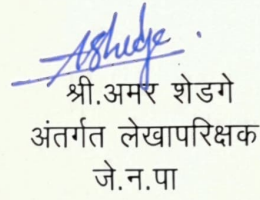 श्री.अमर शेडगे
अंतर्गत लेखापरिक्षक
जे.न.पा